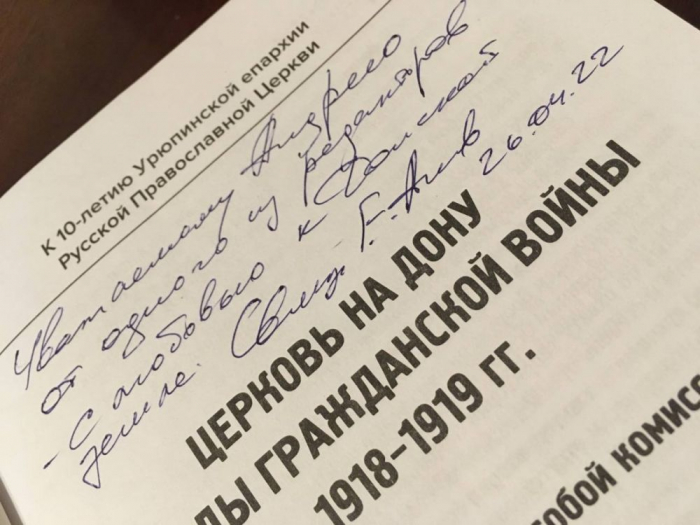 К 10-летию Урюпинской епархии
Русской Православной Церкви
Уважаемому Андрею
от одного из редакторов
- с любовью к Донской
земле. Свящ. Е. 26.04.22
ЦЕРКОВЬ НА ДОНУ
ДЫ ГРАЖДАНСКОЙ ВОЙНЫ
1918-1919 гг.
собой комисс